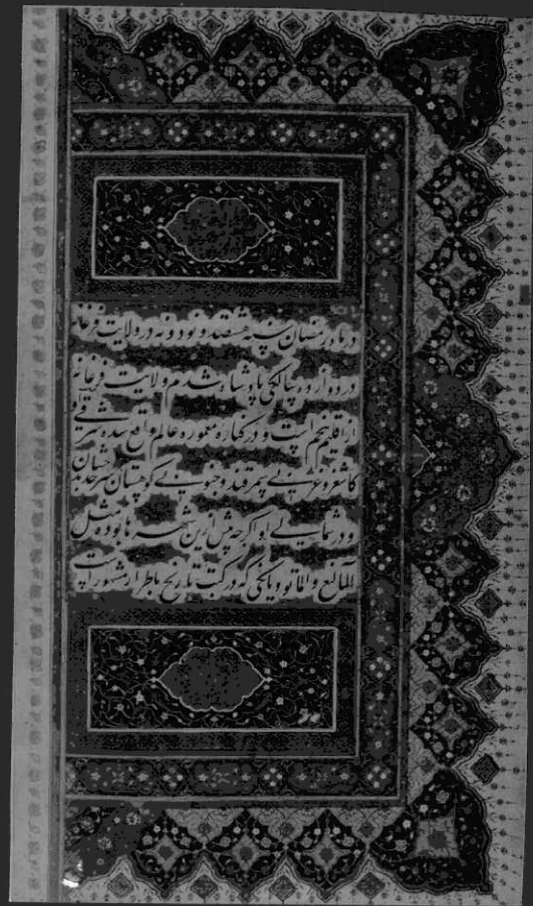 در ماه رمضان سنه هشتصد و نود و نه در ولایت فرغانه
در دوازده سالگی پادشاه شدم ولایت فرغانه
از اقلیم پنجم است و در کناره معموره عالم واقع شده شرقی او
کاشغر و غربی سمرقند و جنوبی کوهستان سرحد بدخشان
و در شمالی او اگرچه پیش ازین شهرها بوده مثل
المالیغ و الماتو و یانکی که در کتب تاریخ باطرار مشهور است